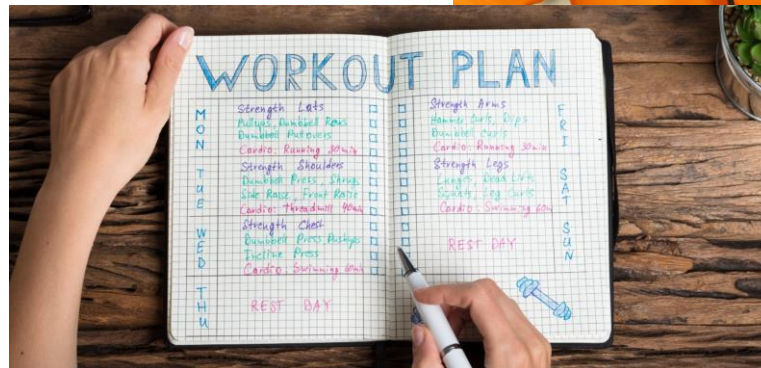 WORKOUT PLAN
MON
Strength Lats
Pullups, Dumbbell Rows
Dumbbell Pullovers
Cardio: Running 30min
TUE
Strength Shoulders
Dumbbell Press, Shrugs
Side Raise, Front Raise
Cardio: Threadmill 40min
WED
Strength Chest
Dumbbell Press Pushups
Incline Press
Cardio: Swimming 60min
THU
REST DAY
FRI
Strength Arms
Hammer Curls, Dips
Dumbbell Curls
Cardio: Running 30min
SAT
Strength Legs
Lunges, Dead Lifts
Squats, Leg Curls
Cardio: Swimming 60m
SUN
REST DAY